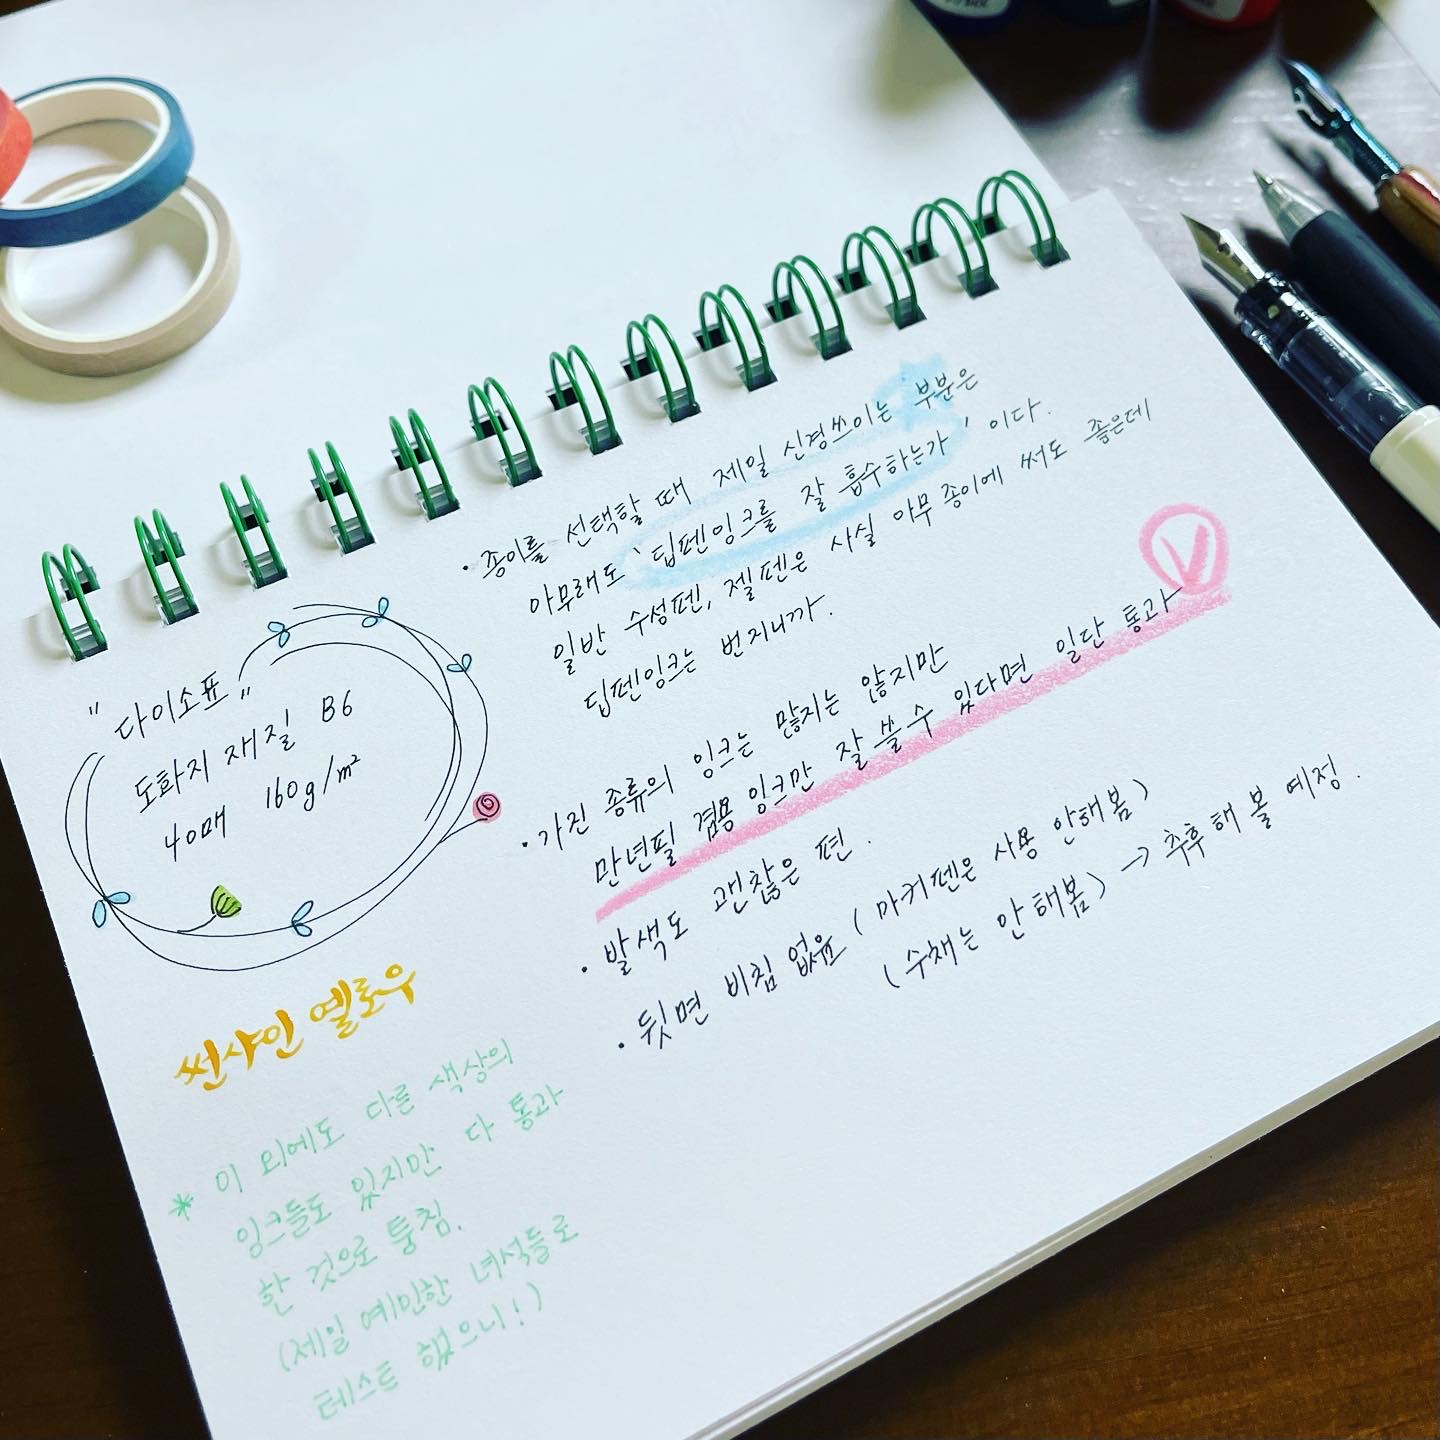 "다이소표"
도화지 재질 B6
40매 160g/m²
· 종이를 선택할 때 제일 신경쓰이는 부분은
아무래도 '딥펜잉크를 잘 흡수하는가' 이다.
일반 수성펜, 젤펜은 사실 아무 종이에 써도 좋은데
딥펜잉크는 번지니까.
· 가진 종류의 잉크는 많지는 않지만
만년필 겸용 잉크만 잘 쓸 수 있다면 일단 통과
· 발색도 괜찮은 편.
· 뒷면 비침 없음 (마커펜은 사용 안해봄)
(수채는 안 해봄) → 추후 해 볼 예정.
썬샤인 옐로우
* 이 외에도 다른 색상의
잉크들도 있지만 다 통과
한 것으로 퉁침.
(제일 예민한 녀석들로
테스트 했으니!)